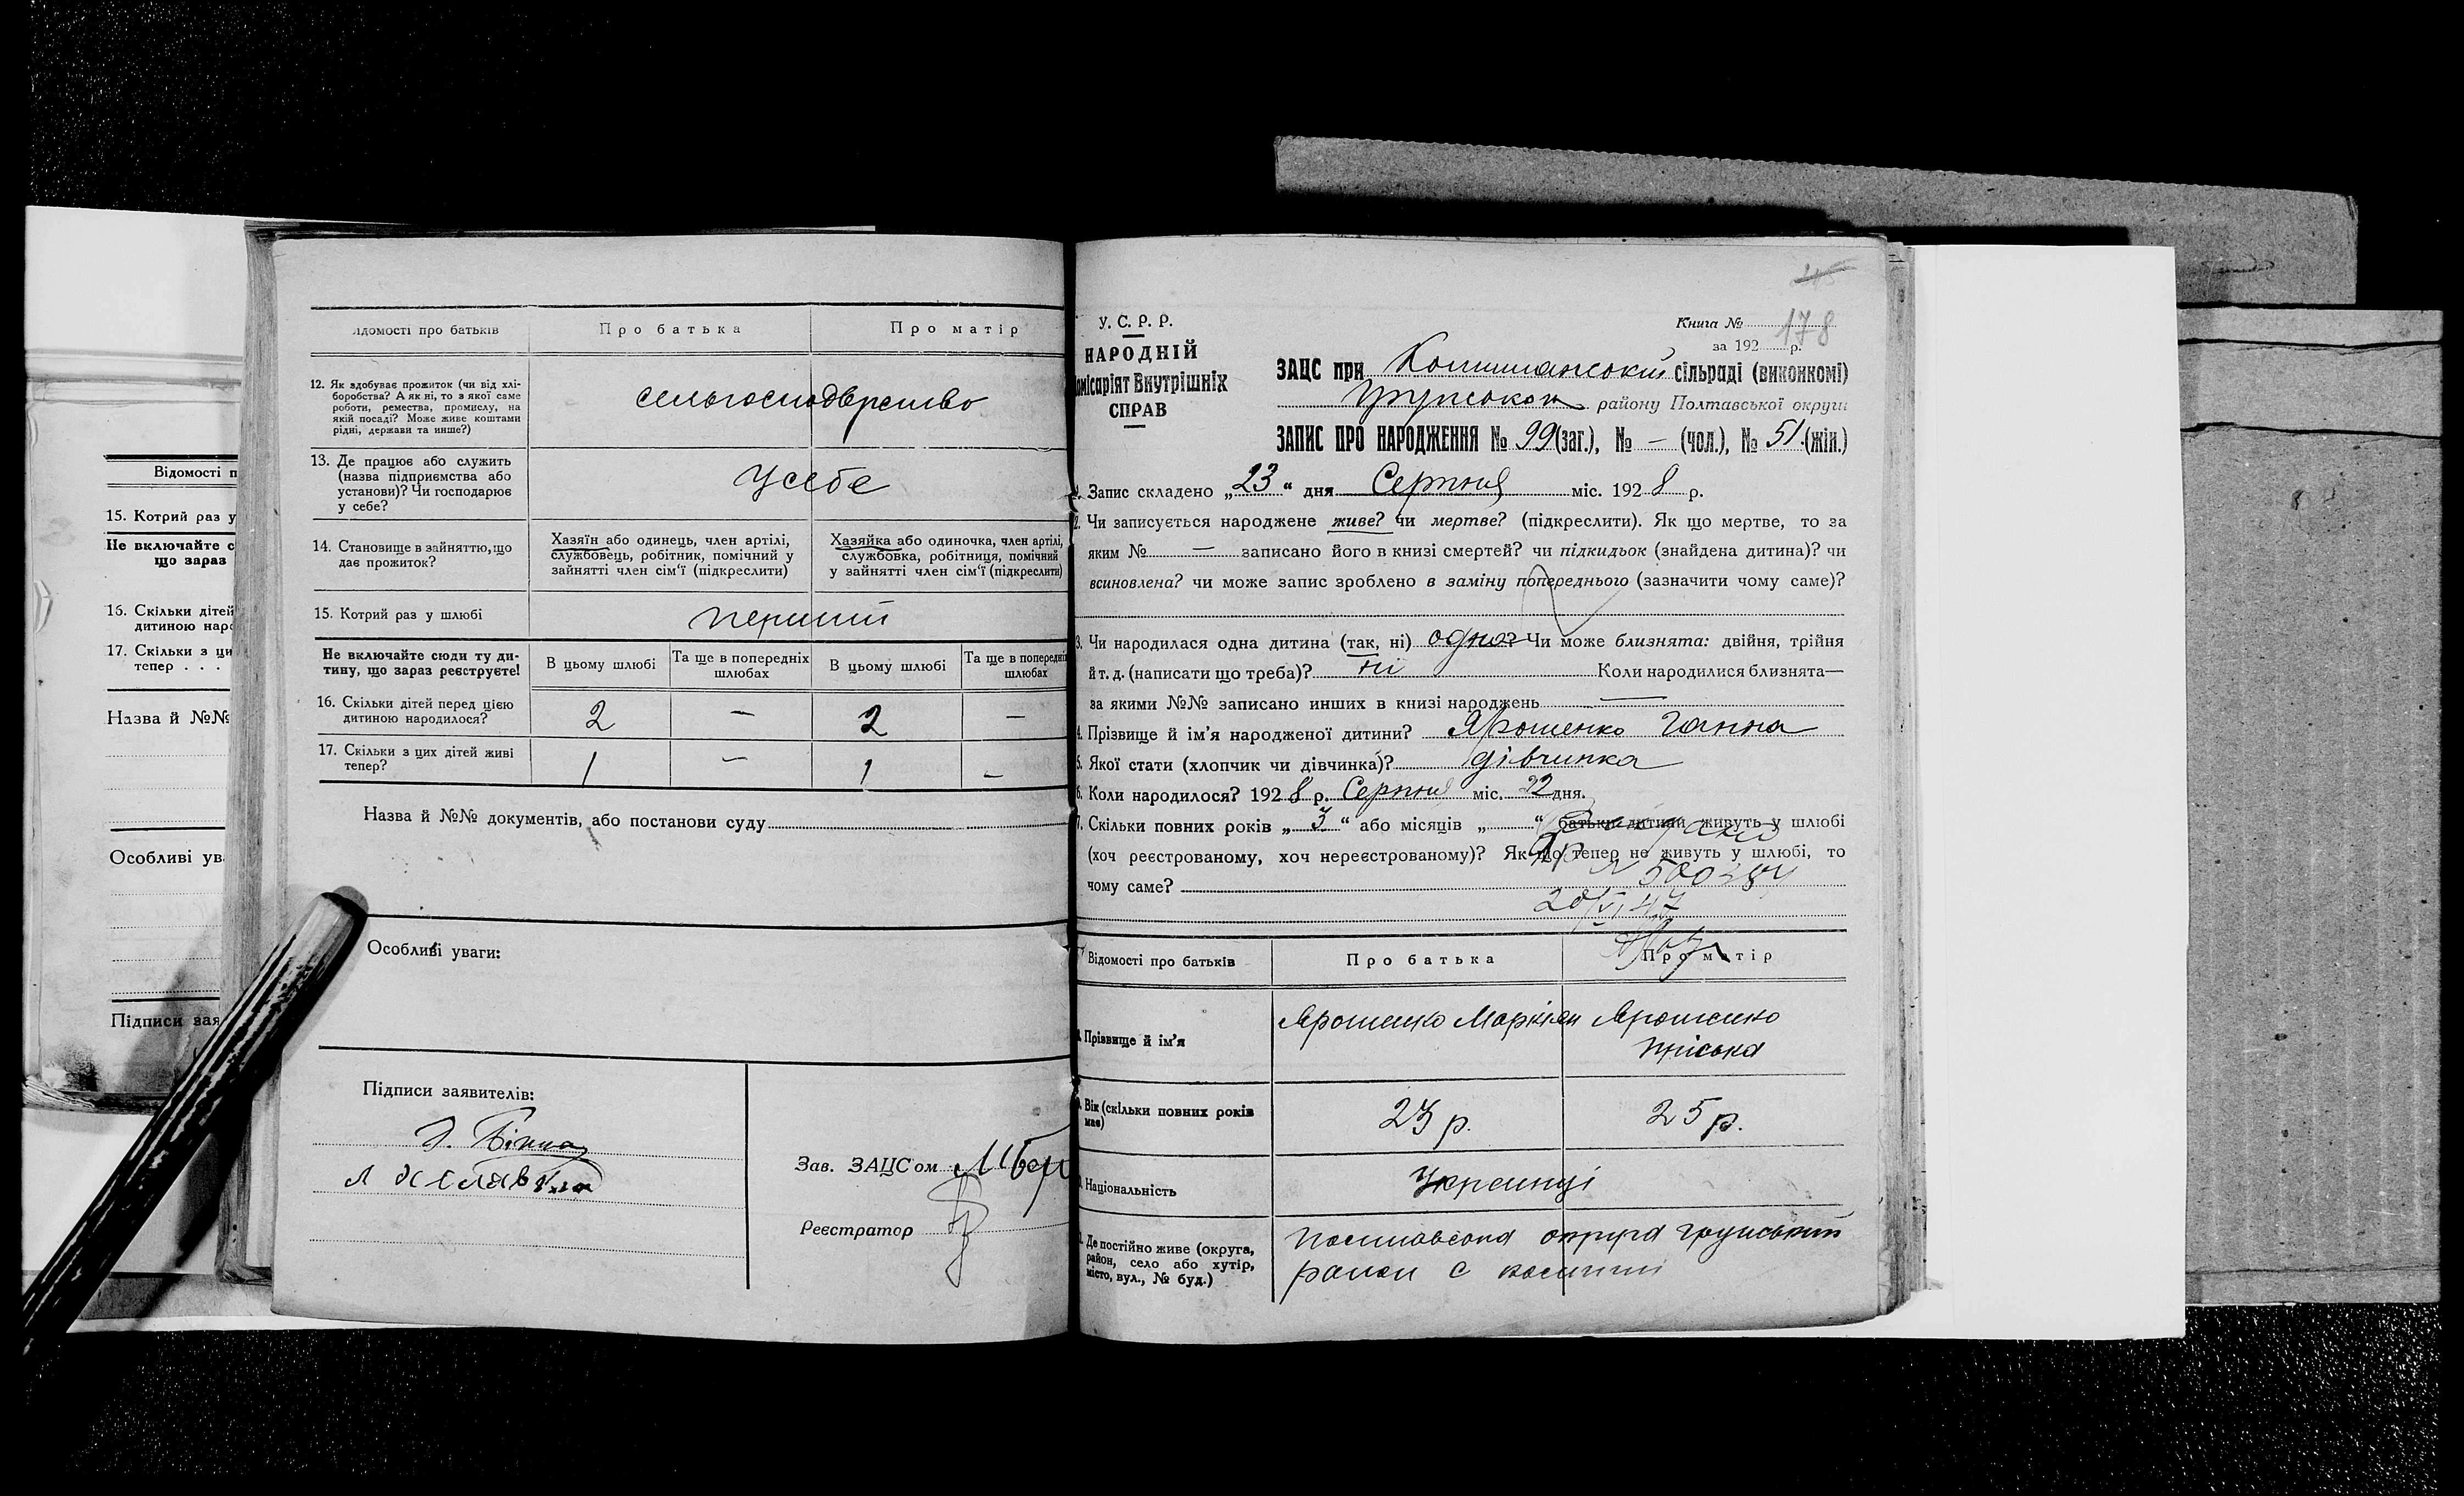 Відомості п
15. Котрий раз у
Не включайте с
що зараз
16. Скільки дітей
дитиною наро
17. Скільки з ци
тепер . . .
Назва й №№
Особливі ув
Підписи зая
ідомості про батьків
Про батька
Про матір
12. Як здобуває прожиток (чи від хлі-
боробства? А як ні, то з якої саме
роботи, ремества, промислу, на
якій посаді? Може живе коштами
рідні, держави та инше?)
сельгосподврство
13. Де працює або служить
(назва підприємства або
установи)? Чи господарює
у себе?
У себе
14. Становище в зайняттю, що
дає прожиток?
Хазяїн або одинець, член артілі,
службовець, робітник, помічний у
зайнятті член сім'ї (підкреслити)
Хазяйка або одиночка, член артілі,
службовка, робітниця, помічний
у зайнятті член сім'ї (підкреслити)
15. Котрий раз у шлюбі
перший
Не включайте сюди ту ди-
тину, що зараз реєструєте!
В цьому шлюбі
Та ще в попередніх
шлюбах
В цьому шлюбі
Та ще в попередніх
шлюбах
16. Скільки дітей перед цією
дитиною народилося?
2 — 2 —
17. Скільки з цих дітей живі
тепер?
1 — 1 —
Назва й №№ документів, або постанови суду
Особливі уваги:
Підписи заявителів:
Зав. ЗАЦСом
Реєстратор
У. С. Р. Р.
НАРОДНІЙ
омісаріят Внутрішніх
СПРАВ
178
Книга №
за 192 р.
ЗАЦС при сільраді (виконкомі)
району Полтавської округи
ЗАПИС ПРО НАРОДЖЕННЯ № 99 (заг.), № — (чол.), № 51 (жін.)
1. Запис складено „ 23 “ дня Серпня міс. 192 8 р.
2. Чи записується народжене живе? чи мертве? (підкреслити). Як що мертве, то за
яким № — записано його в книзі смертей? чи підкидьок (знайдена дитина)? чи
всиновлена? чи може запис зроблено в заміну попереднього (зазначити чому саме)?
3. Чи народилася одна дитина (так, ні) одна? Чи може близнята: двійня, трійня
й т. д. (написати що треба)? ні Коли народилися близнята—
за якими №№ записано инших в книзі народжень —
4. Прізвище й ім'я народженої дитини? Ярошенко Ганна
5. Якої стати (хлопчик чи дівчинка)? дівчинка
6. Коли народилося? 192 8 р. Серпня міс. 22 дня.
7. Скільки повних років „ 3 “ або місяців „ “ батьки дитини живуть у шлюбі
(хоч реєстрованому, хоч нереєстрованому)? Як що тепер не живуть у шлюбі, то
чому саме?
Відомості про батьків
Про батька
Про матір
Прізвище й ім'я
Ярошенко Маркіян
Ярошенко
Пріська
Вік (скільки повних років
має)
23 р.
25 р.
Національність
Украинці
Де постійно живе (округа,
район, село або хутір,
місто, вул., № буд.)
Полтавська округа Грунський
район с